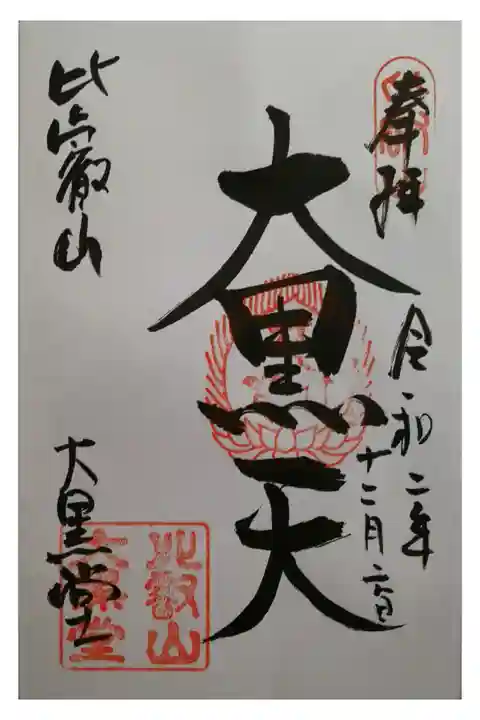 奉拝
令和二年
十二月六日
大黒天
比叡山
大黒堂
比叡山
大黒堂